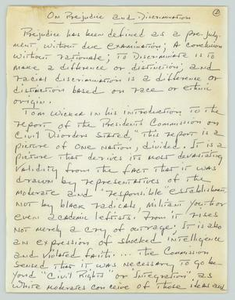 On Prejudice and Discrimination
Prejudice has been defined as a pre-judg-
ment, without due examination; a conclusion
without rationale; To Discriminate is to
make a difference or distinction, and
racial discrimination is a difference or
distinction based on race or ethnic
origin.
Tom Wicker in his introduction to the
report of the President's Commission on
Civil Disorders stated, "this report is a
picture of one nation, divided. It is a
picture that derives its most devastating
validity from the fact that it was
drawn by representatives of the
moderate and "responsible" establishment
not by black radicals, militant youth or
even academic leftists. From it rises
not merely a cry of outrage; it is also
an expression of shocked intelligence
and violated faith... the Commission
sensed that it was necessary to go be-
yond "Civil Rights" or "Integration", as
white moderates conceive of those ideas and